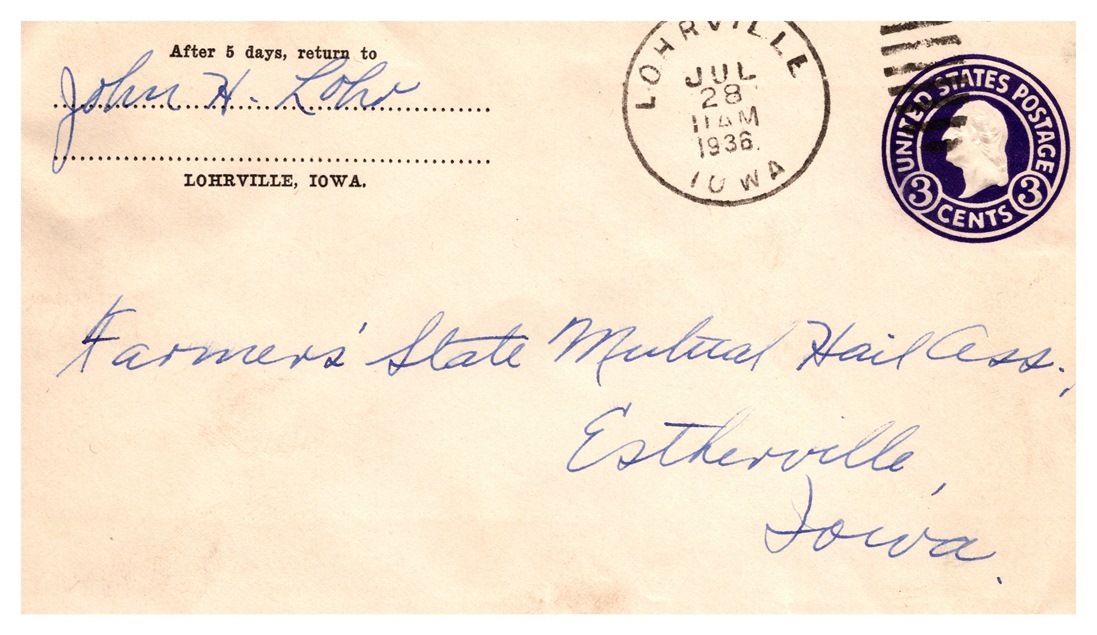 After 5 days, return to
John H. Lohr
LOHRVILLE, IOWA.
LOHRVILLE
JUL
28
11 AM
1936.
IOWA
UNITED STATES POSTAGE
3 CENTS 3
Farmer's State Mutual Hail Ass.,
Estherville,
Iowa.